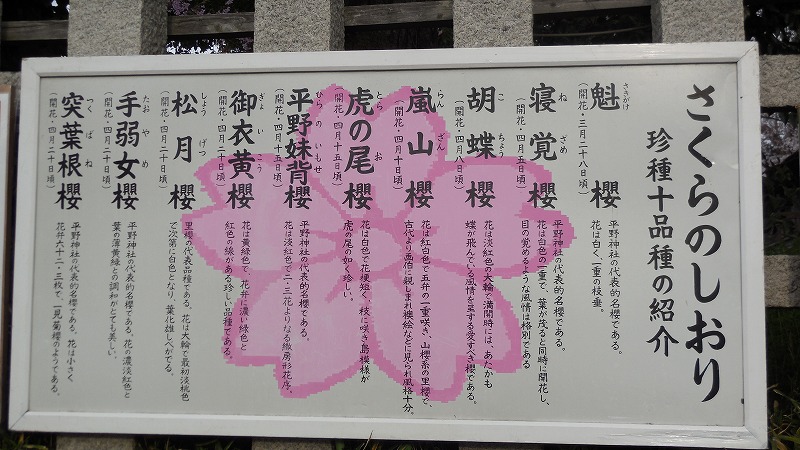 さくらのしおり
珍種十品種の紹介
魁 櫻
さきがけ
(開花・三月二十八日頃)
平野神社の代表的名櫻である。
花は白く、一重の枝垂。
寝覚櫻
ね ざめ
(開花・四月五日頃)
平野神社の代表的名櫻である。
花は白色の一重で、葉が茂ると同時に開花し、
目の覚めるような風情は格別である
胡蝶櫻
こ ちょう
(開花・四月八日頃)
花は淡紅色の大輪で満開時には、あたかも
蝶が飛んでいる風情を呈する愛すべき櫻である。
嵐山 櫻
らん ざん
(開花・四月十日頃)
花は紅白色で五弁の一重咲き、山櫻系の里櫻で、
古代より画伯に親しまれ襖絵などに見られ風格十分。
虎の尾櫻
とら お
(開花・四月十五日頃)
花は白色で花梗短く、枝に咲き島模様が
虎の尾の如く珍しい。
平野妹背櫻
ひら の いもせ
(開花・四月十五日頃)
平野神社の代表的名櫻である。
花は淡紅色で二・三花よりなる繖房形花序。
御衣黄櫻
ぎょ い こう
(開花・四月二十日頃)
花は黄緑色で、花弁に濃い緑色と
紅色の線がある珍しい品種である。
松月 櫻
しょう げつ
(開花・四月二十日頃)
里櫻の代表品種である。花は大輪で最初淡桃色
で次第に白色となり、葉化雄しべがでる。
手弱女櫻
たお や め
(開花・四月二十日頃)
平野神社の代表的名櫻である。花の濃淡紅色と
葉の薄黄緑との調和がとても美しい。
突葉根櫻
つく ば ね
(開花・四月二十日頃)
平野神社の代表的名櫻である。花は小さく
花弁六十二・三枚で、一見菊櫻のようである。